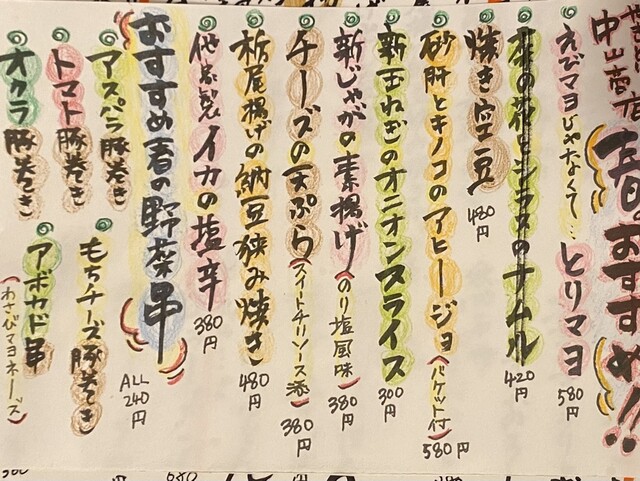 中山商店
春おすすめ!!
えびマヨじゃなくて…とりマヨ 580円
菜の花とシラスのナムル 420円
焼き空豆 480円
砂肝とキノコのアヒージョ(バケット付) 580円
新玉ねぎのオニオンスライス 300円
新じゃがの素揚げ(のり塩風味) 380円
チーズの天ぷら(スイートチリソース添) 380円
栃尾揚げの納豆狭み焼き 480円
自家製イカの塩辛 380円
おすすめ春の野菜串 ALL 240円
アスパラ豚巻き
トマト豚巻き
オクラ豚巻き
もちチーズ豚巻き
アボカド串
(わさびマヨネーズ)